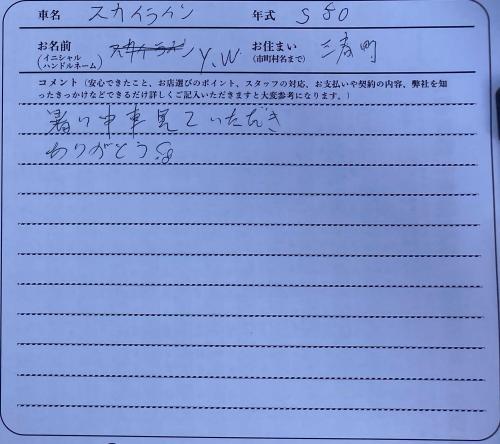 車名 スカイライン 年式 S50
お名前 (イニシャル ハンドルネーム) スカイライン Y.W. お住まい (市町村名まで) 三春町
コメント(安心できたこと、お店選びのポイント、スタッフの対応、お支払いや契約の内容、弊社を知
ったきっかけなどできるだけ詳しくご記入いただきますと大変参考になります。)
暑い中車見ていただき
ありがとう